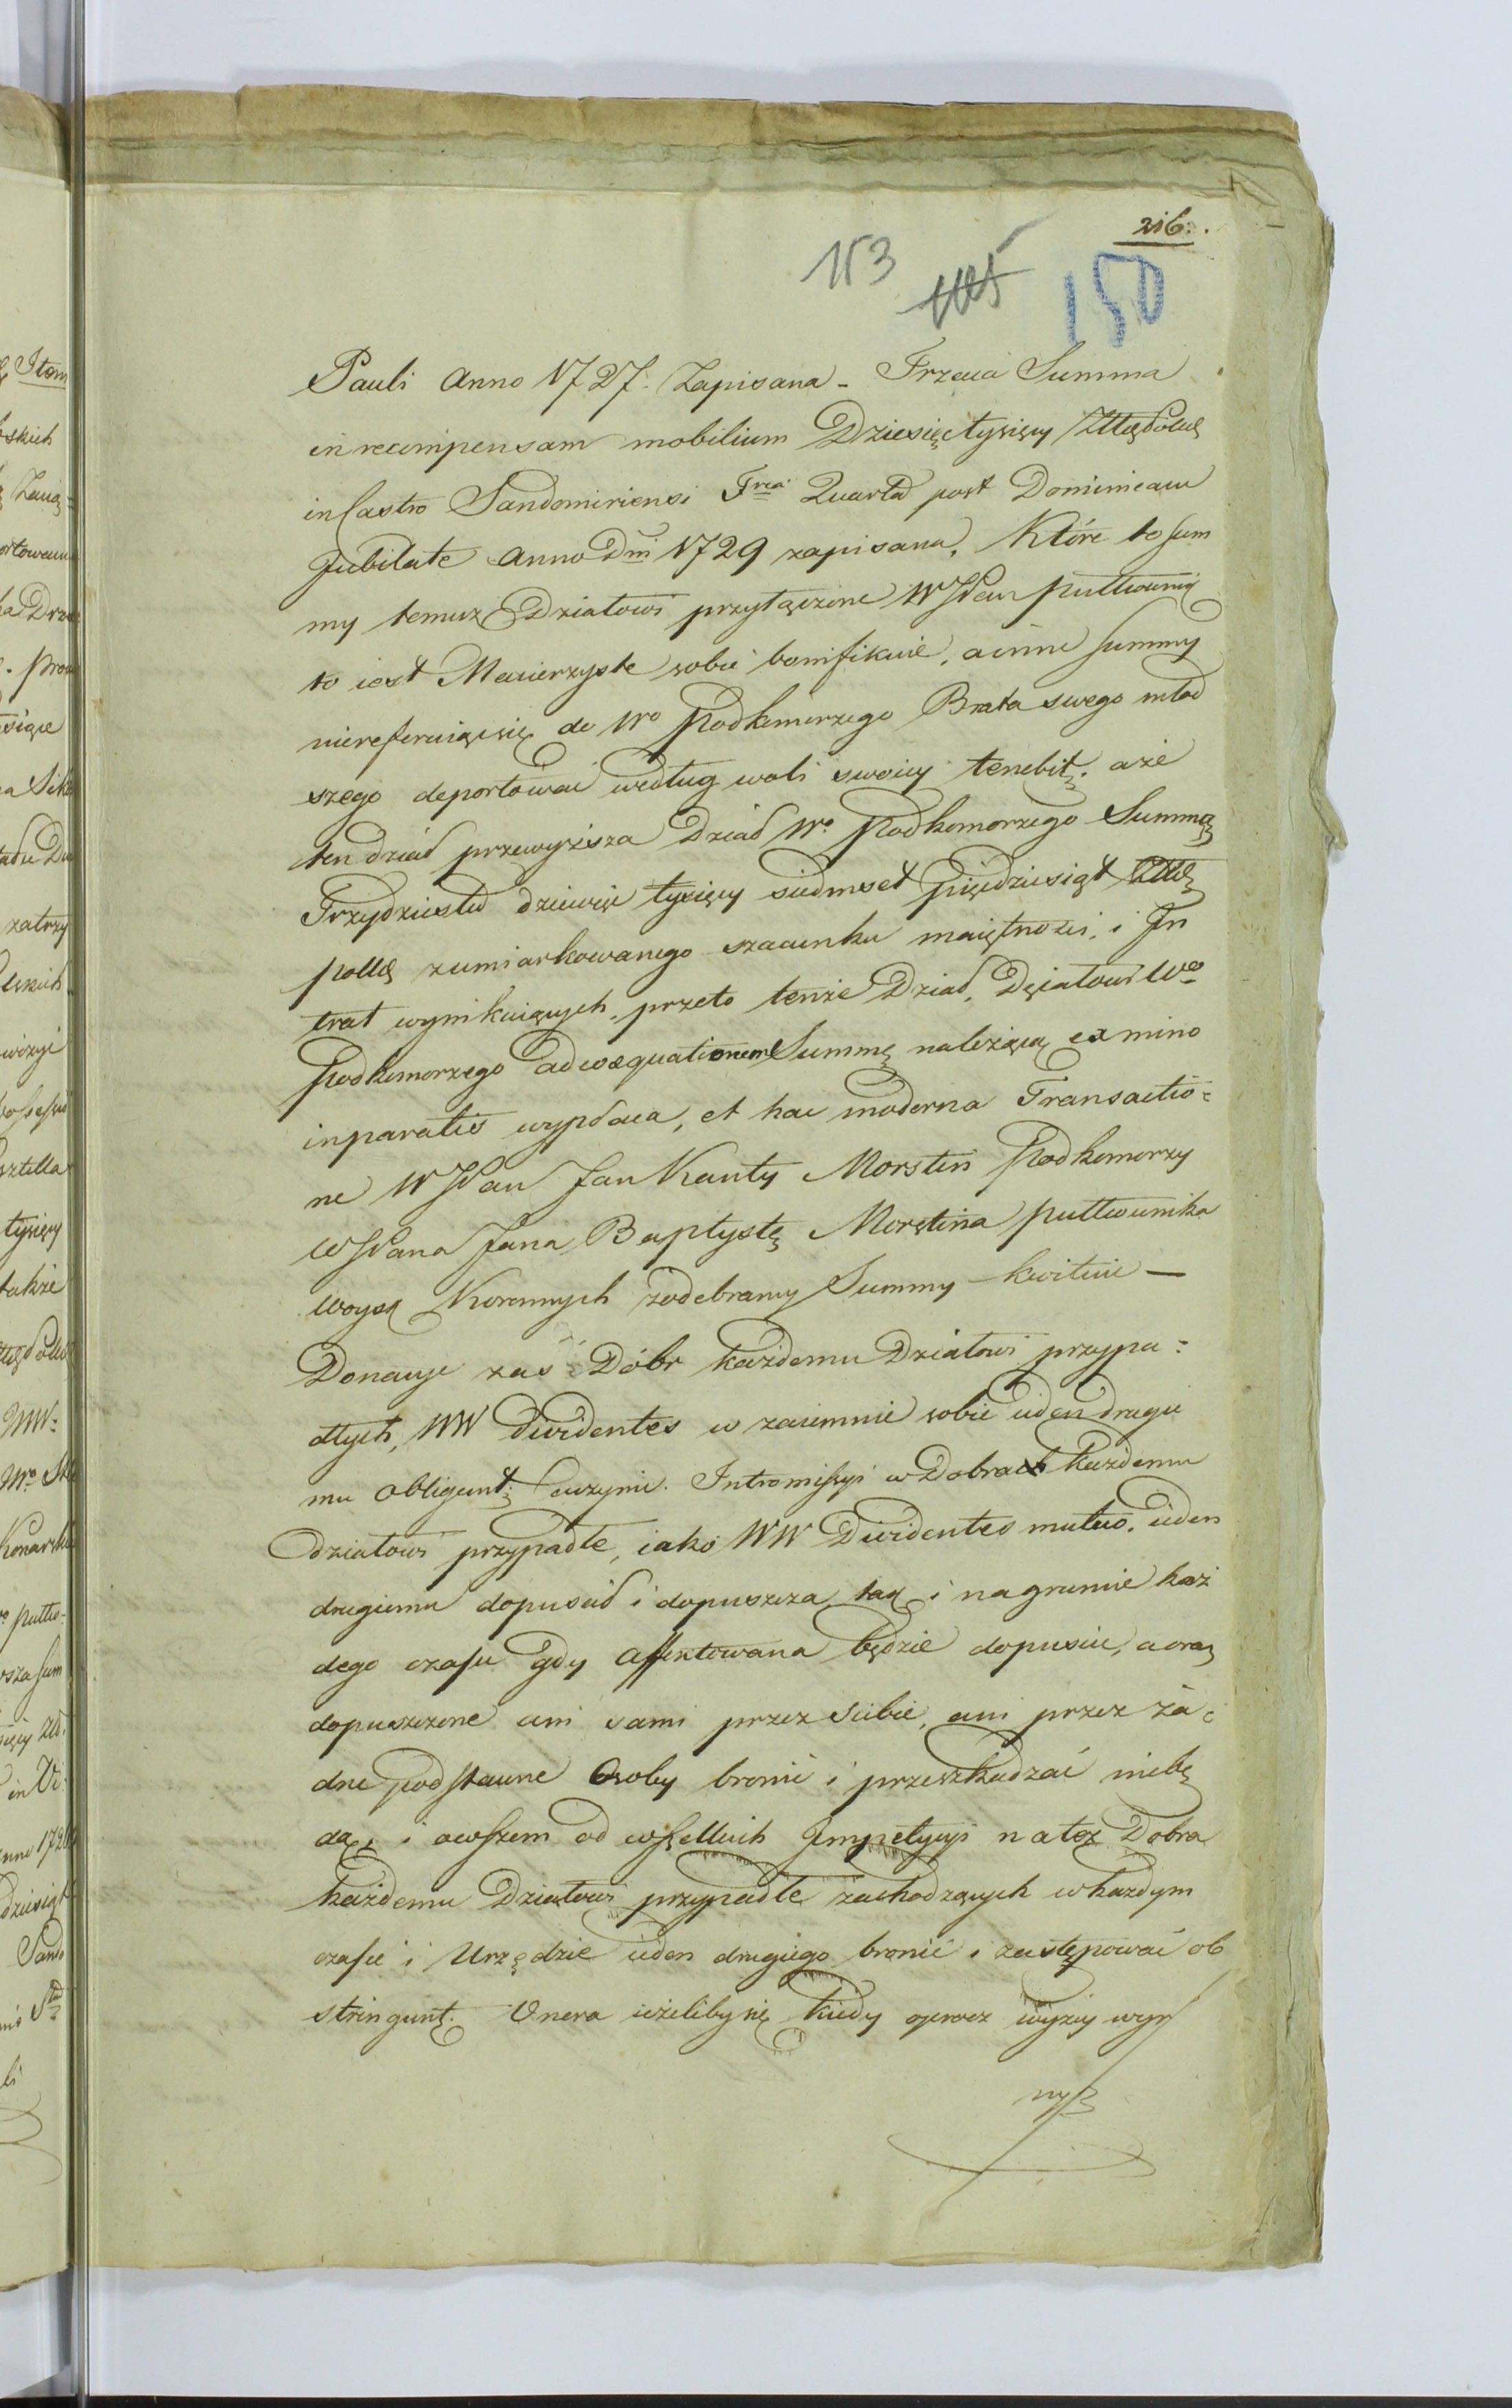 216.
153
150
Pauli Anno 1727. Zapisana - Trzecia Summa
in recompensam mobilium Dziesięć tysięcy
in Castro Sandomiriensi Fria Quarta post Dominicam
Jubilate Anno Dni 1729 zapisana, Które to sum
my temuż Działowi przyłączone WJPan Pułkownik
to iest Macierzyste sobie bonifikuie, a inne summy
niereferuiąc się do Wo Podkomorzego Brata swego młod
szego deportować według woli swoiey tenebit. aże
ten dział przewyższa Dział Wo Podkomorzego Summą
Trzydziestu dziewięć tysięcy siedmset pięćdziesiąt
polk zumiarkowanego szacunku maiętności, i In
trat wynikaiących, przeto tenże Dział, Działowi Wo
Podkomorzego adcoaequationem Summę należącą ex nunc
in paratis wypłaca, et hac moderna Transactio=
ne WJPan Jan Kanty Morstin Podkomorzy
WJPana Jana Baptystę Morstina pułkownika
Woysk Koronnych zodebrany Summy kwituie —
Donacye zaś Dóbr każdemu Działowi przypa=
dłych, WW Dividentes w zaiemnie sobie ieden drugie
mu obligunt uczynić. Intromissyi w Dobrach każdemu
działowi przypadłe, iako WW Dividentes mutuo, ieden
drugiemu dopuścił i dopuszcza tak i na gruncie każ
dego czasu gdy affektowana będzie dopuście, a oraz
dopuszczone ani sami przez siebie, ani przez ża=
dne podstawne Osoby bronić i przeszkadzać niebę
dą, i owszem od wszelkich Impetycyi na też Dobra
każdemu Działowi przypadłe zachodzących w każdym
czasie i Urzędzie ieden drugiego bronić i zastępować ob
stringunt. Onera ieżeliby się kiedy oprocz wyżey wyr